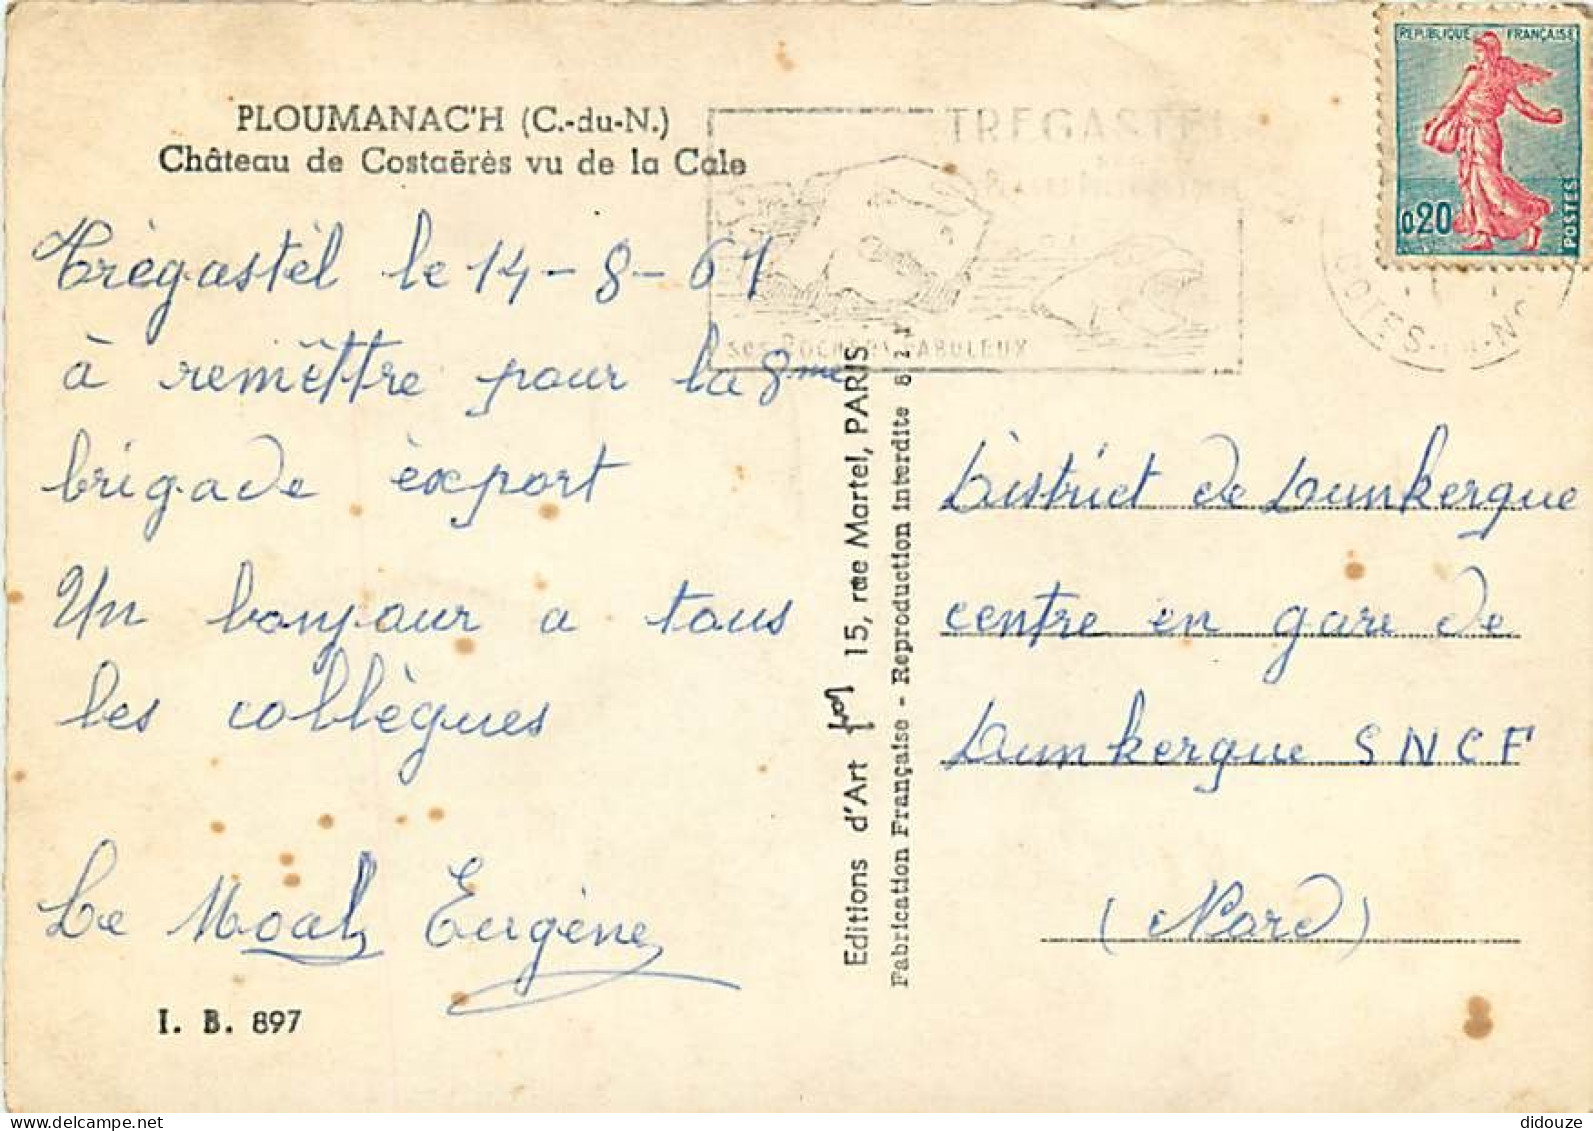 PLOUMANAC'H (C.-du-N.)
Château de Costaërès vu de la Cale
Trégastèl le 14-8-61
à remêttre pour la 8me
brigade èxport
Un bonjour a tous
les collègues
Le Moal Eugène
I. B. 897
TREGASTEL
ses ROCHERS FABULEUX
REPUBLIQUE FRANÇAISE
0,20
POSTES
COTES-DU-NORD
Editions d'Art 15, rue Martel, PARIS
Fabrication Française - Reproduction Interdite
District de Dunkergue
centre en gare de
Dunkergue SNCF
(Nord)
delcampe.net
didouze